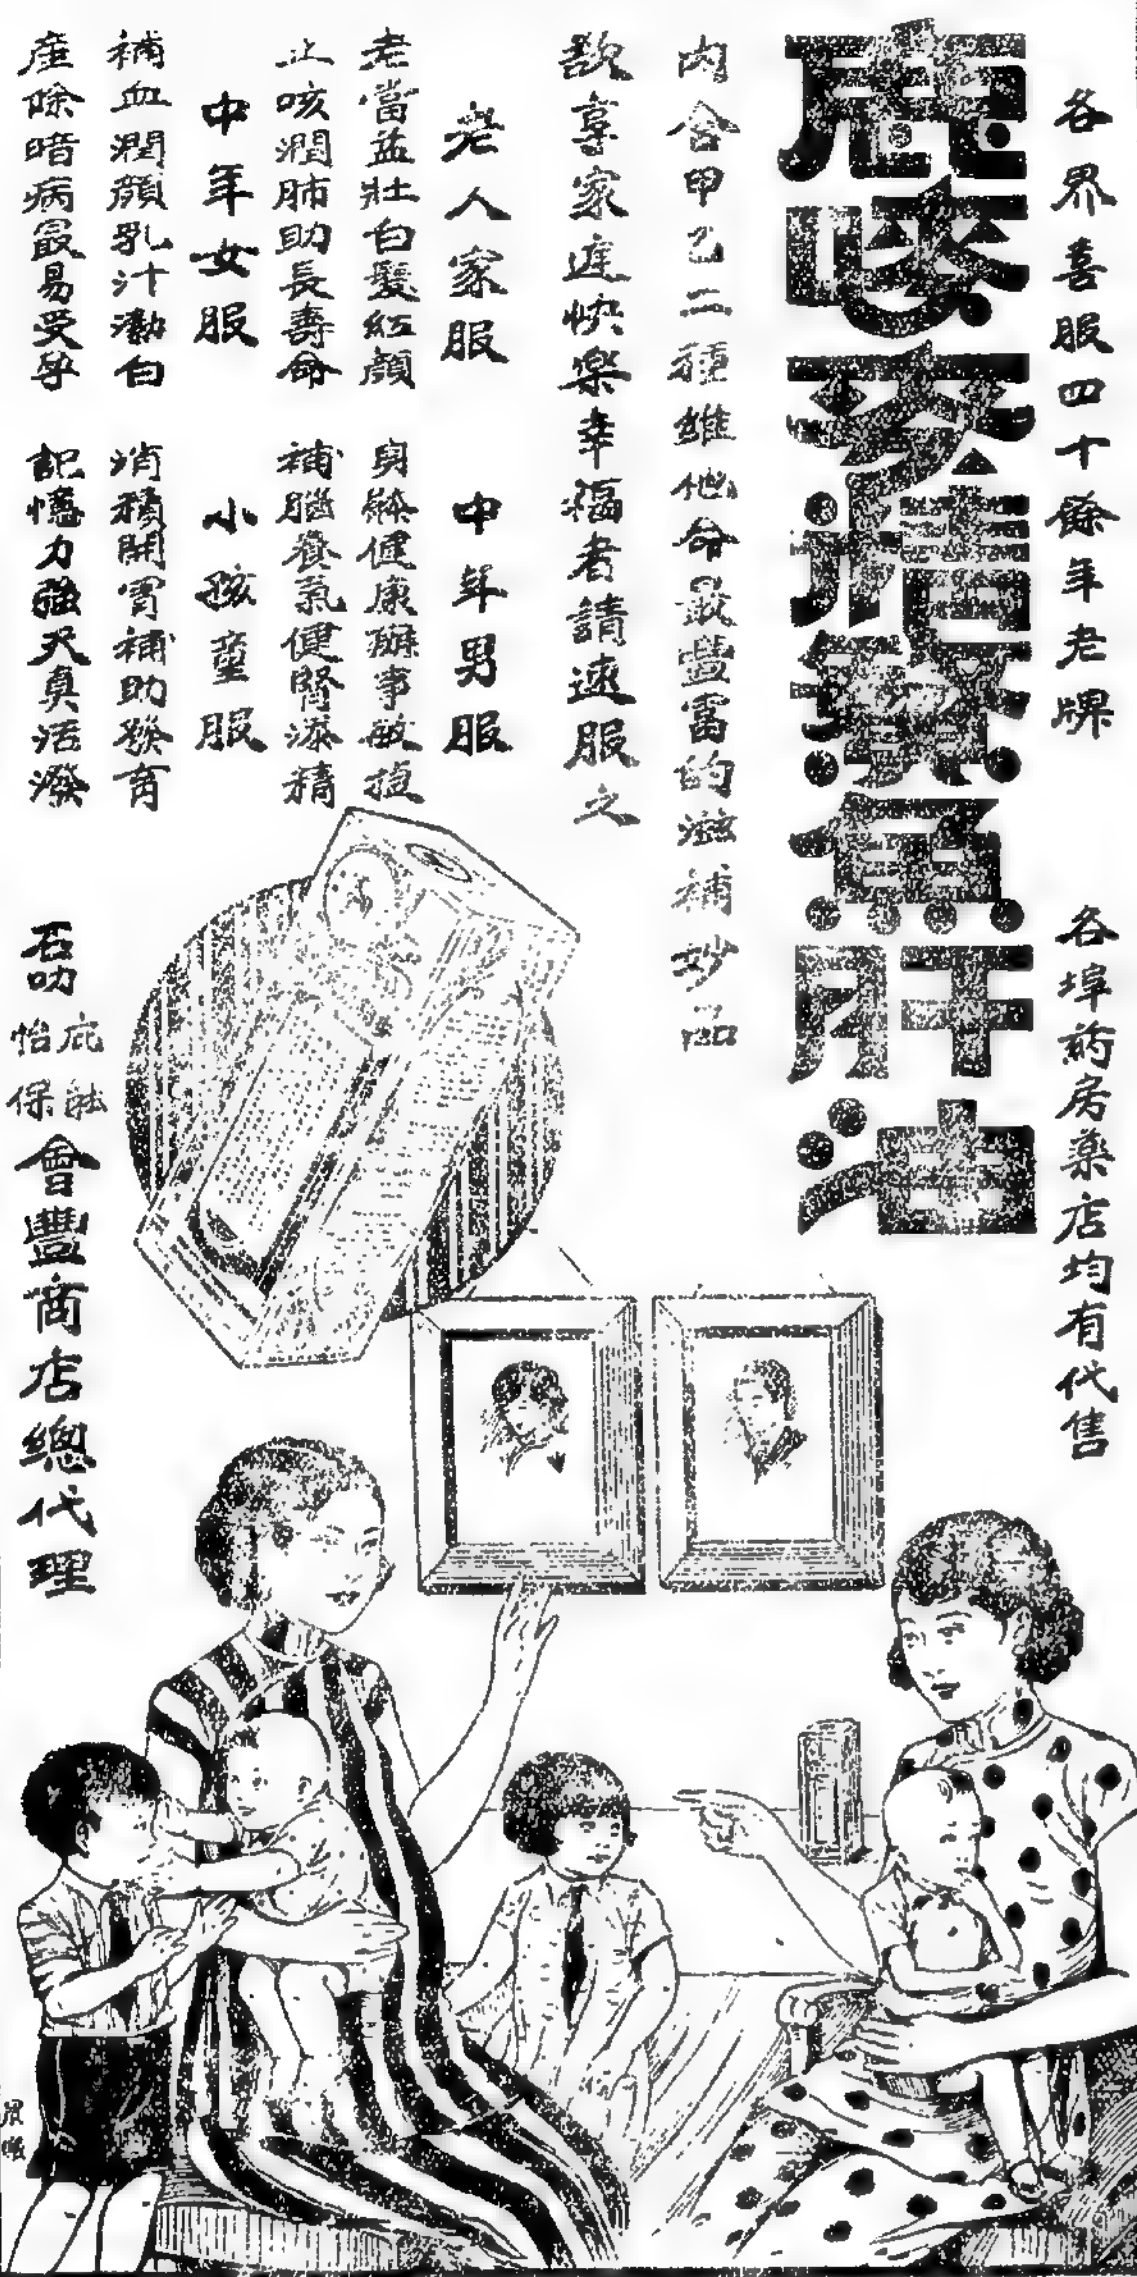 各界喜服四十餘年老牌
各埠葯房藥店均有代售
鹿嘜麥精鰵魚肝油
內含甲乙二種維他命最豐富的滋補妙品
欲享家庭快樂幸福者請速服之
老人家服
老當益壯白髮紅顏
止咳潤肺助長壽命
中年男服
身体健康辦事敏捷
補腦養氣健腎添精
中年女服
補血潤顏乳汁濃白
產除暗病最易受孕
小孩童服
消積開胃補助發育
記憶力強天真活潑
石叻
庇能
怡保
會豐商店總代理